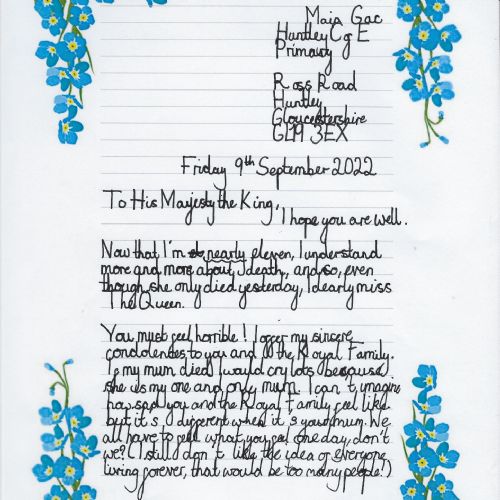 Maja Gac
Huntley C of E
Primary
Ross Road
Huntley
Gloucestershire
GL19 3EX
Friday 9th September 2022
To His Majesty the King,
I hope you are well.
Now that I'm nearly eleven, I understand
more and more about death, and so, even
though she only died yesterday, I dearly miss
The Queen.
You must feel horrible! I offer my sincere
condolences to you and all the Royal Family.
If my mum died I would cry lots because
she is my one and only mum. I can't imagine
how sad you and the Royal Family feel like
but it's different when it's your mum. We
all have to feel what you feel one day, don't
we? (I still don't like the idea of everyone
living forever, that would be too many people!)